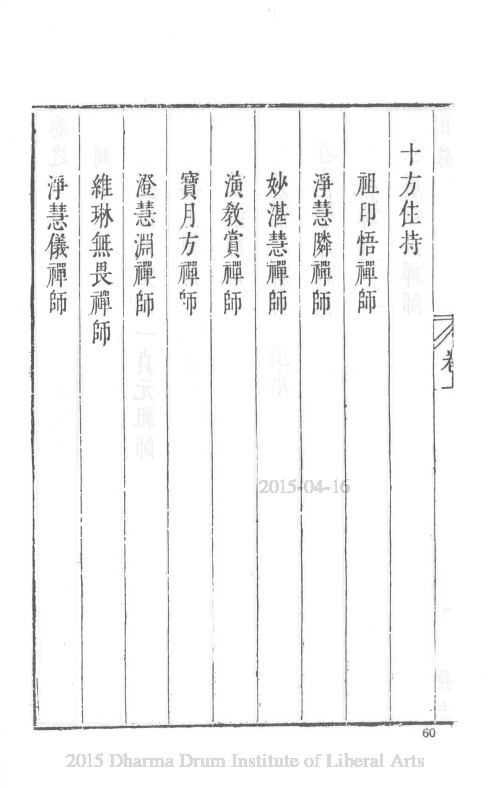 十方住持
祖印悟禪師
淨慧隣禪師
妙湛慧禪師
演教賞禪師
寶月方禪師
澄慧淵禪師
維琳無畏禪師
淨慧儀禪師
卷上
2015-04-16
60
2015 Dharma Drum Institute of Liberal Arts